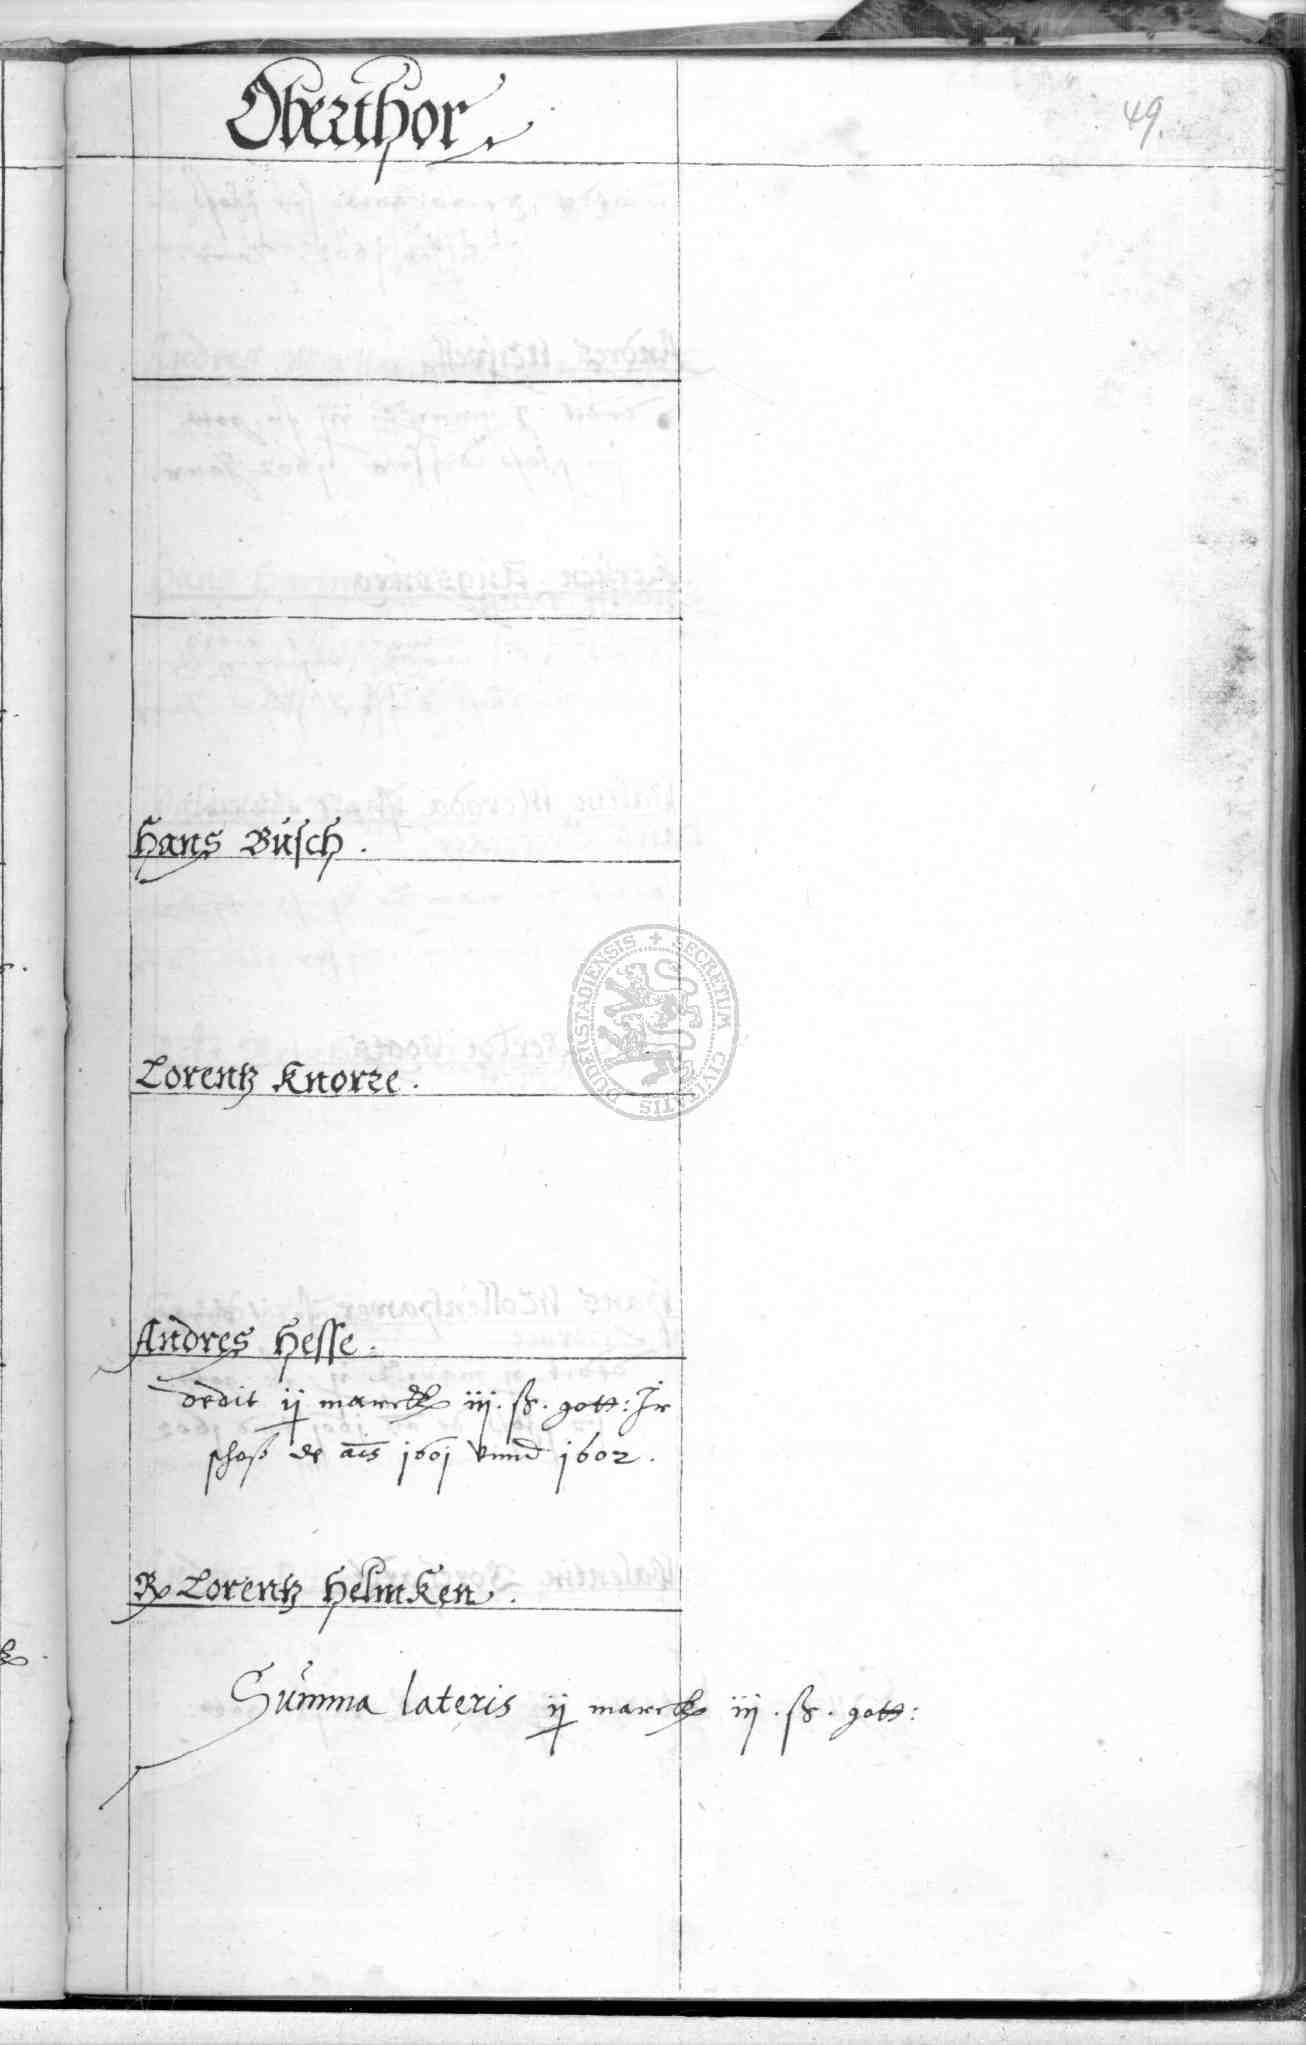 Oberthor.
49.
Hans Busch.
Lorentz Knorre.
Andres Hesse.
dedit ij marck iij. ß. gott: Jr
schoß de ais 1601 vnnd 1602.
Lorentz Helmken.
Summa lateris ij marck iij. ß. gott:
SECRETUM CIVITATIS DUDERSTADIENSIS